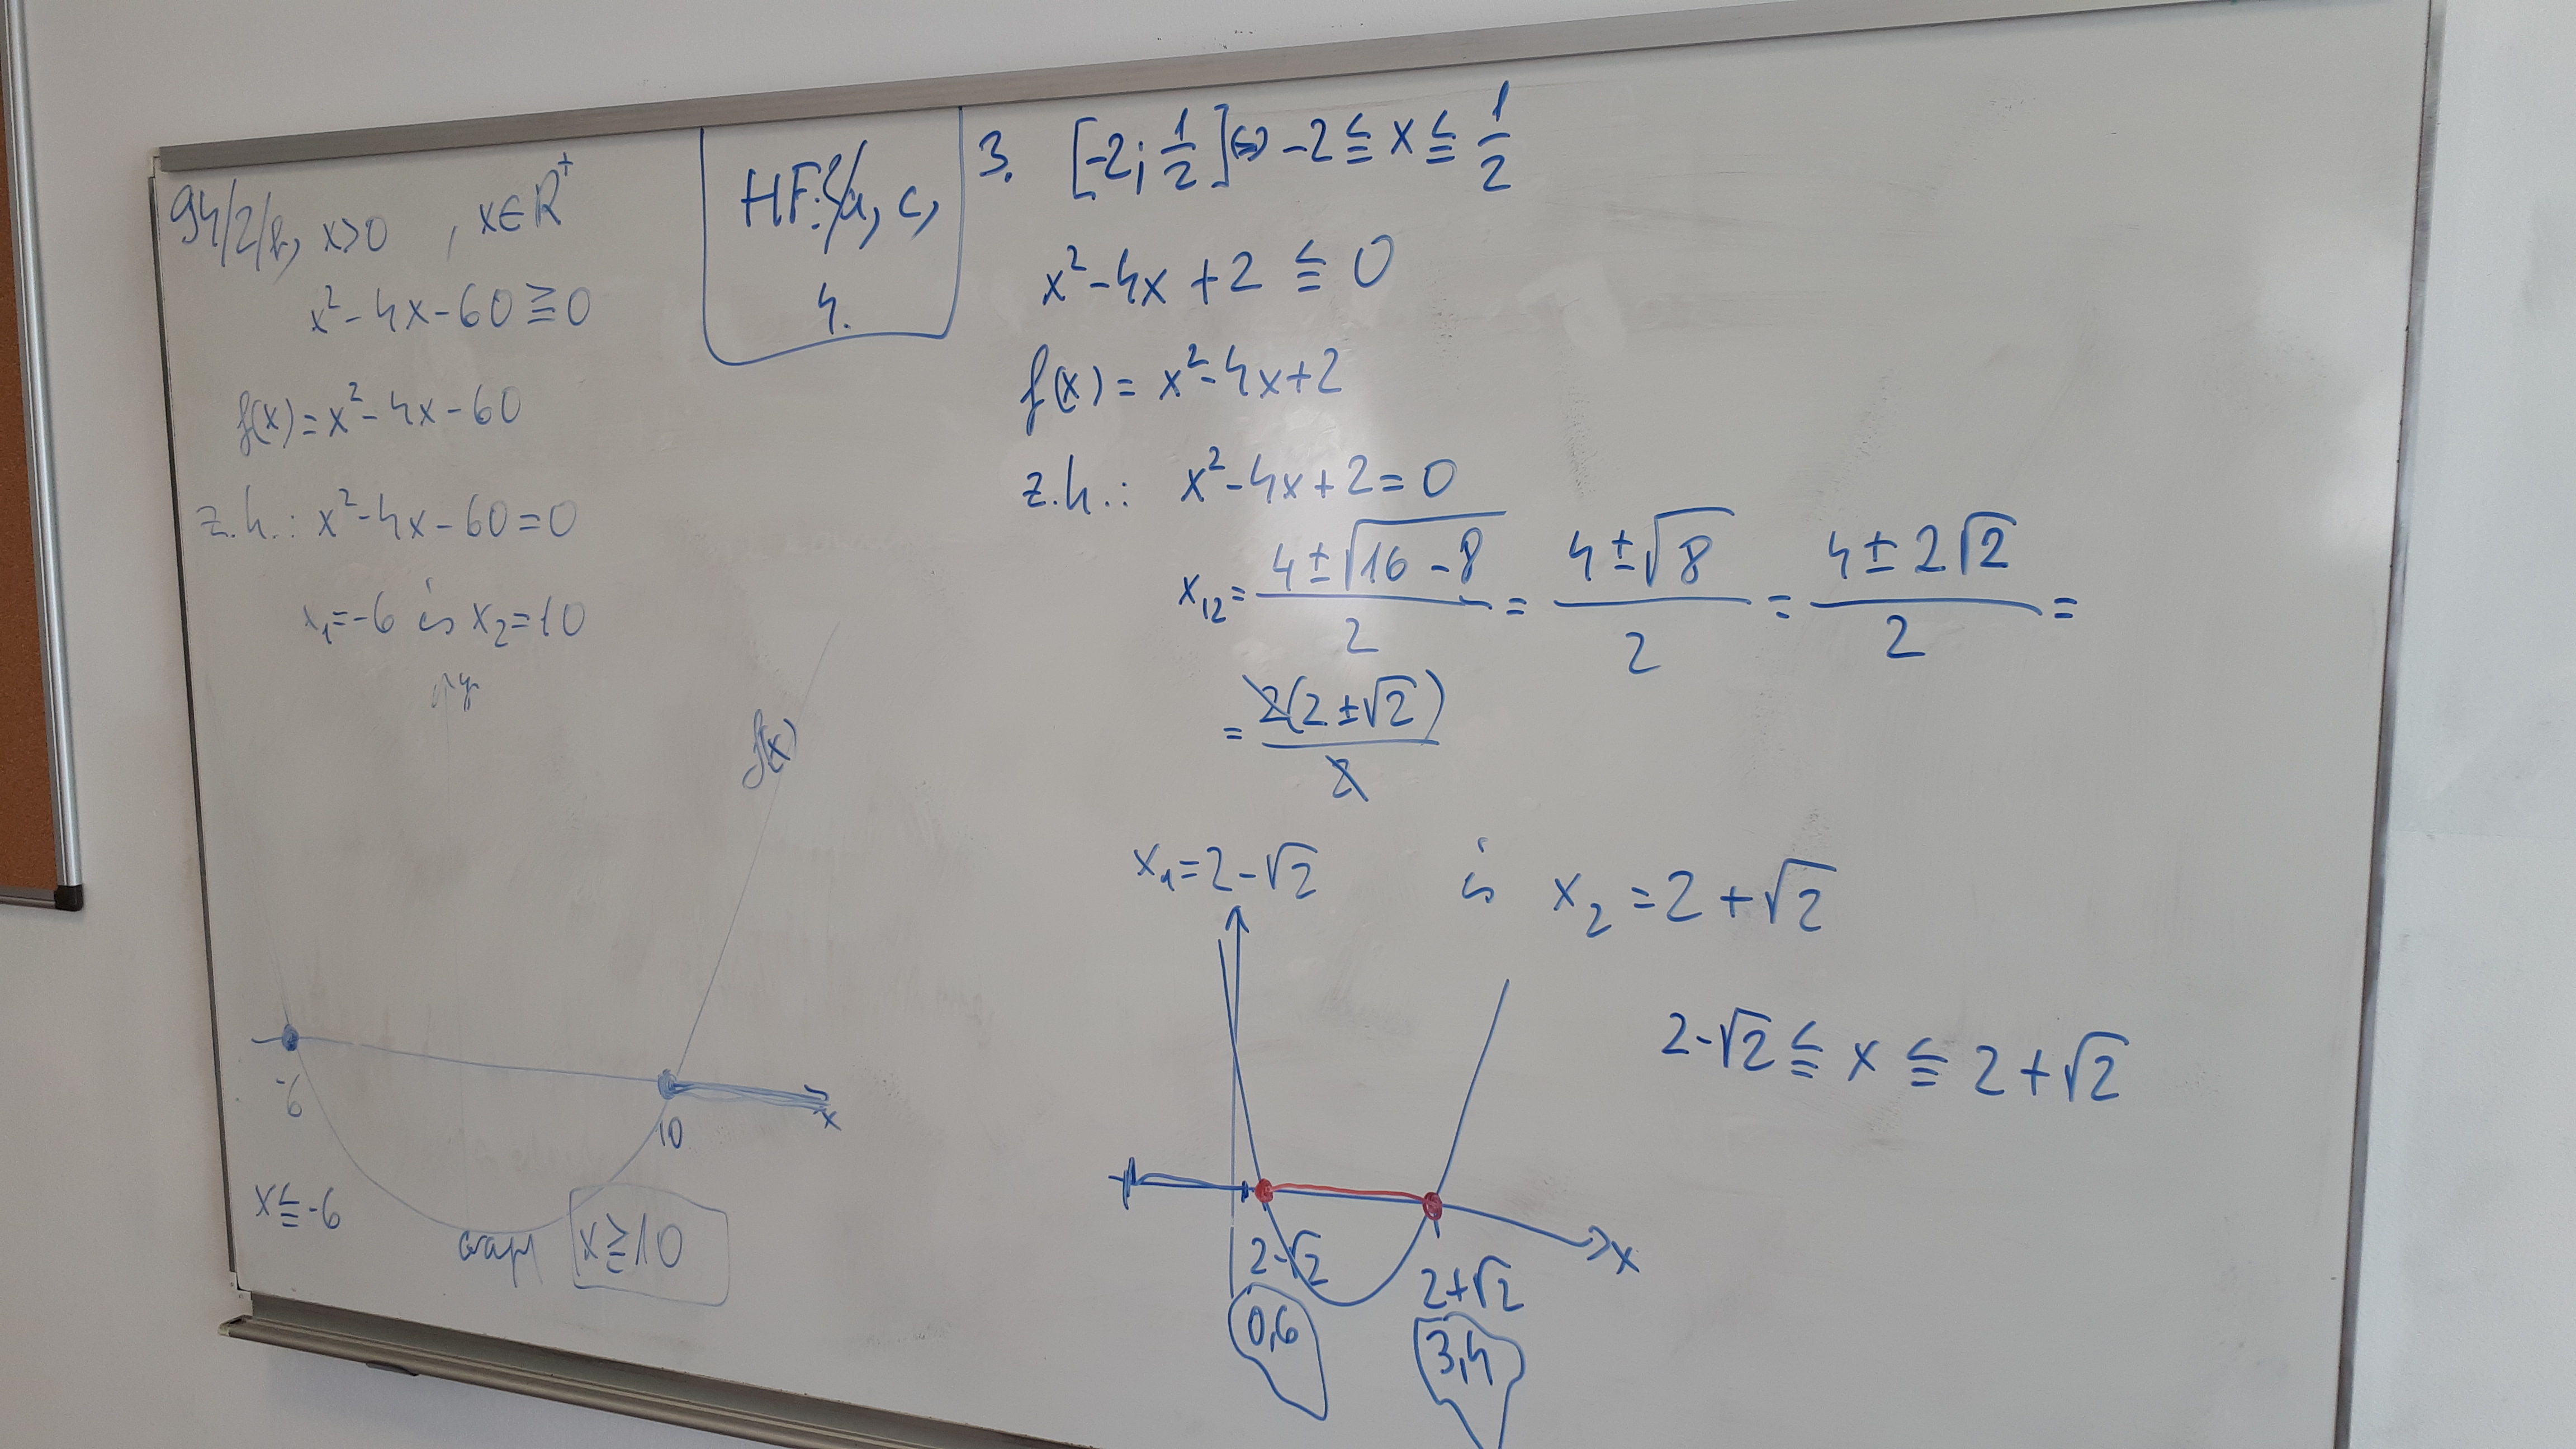 94/2/b, x>0, x∈R⁺
x²-4x-60≧0
f(x)=x²-4x-60
z.h.: x²-4x-60=0
x₁=-6 és x₂=10
y
f(x)
-6
10
x
x≦-6
vagy
x≧10
HF: 2/a, c,
4.
3. [-2; 1/2] ⇔ -2≦x≦1/2
x²-4x+2≦0
f(x)=x²-4x+2
z.h.: x²-4x+2=0
x₁₂=(4±√(16-8))/2=(4±√8)/2=(4±2√2)/2=
=2(2±√2)/2
x₁=2-√2 és x₂=2+√2
2-√2≦x≦2+√2
x
2-√2
2+√2
0,6
3,4